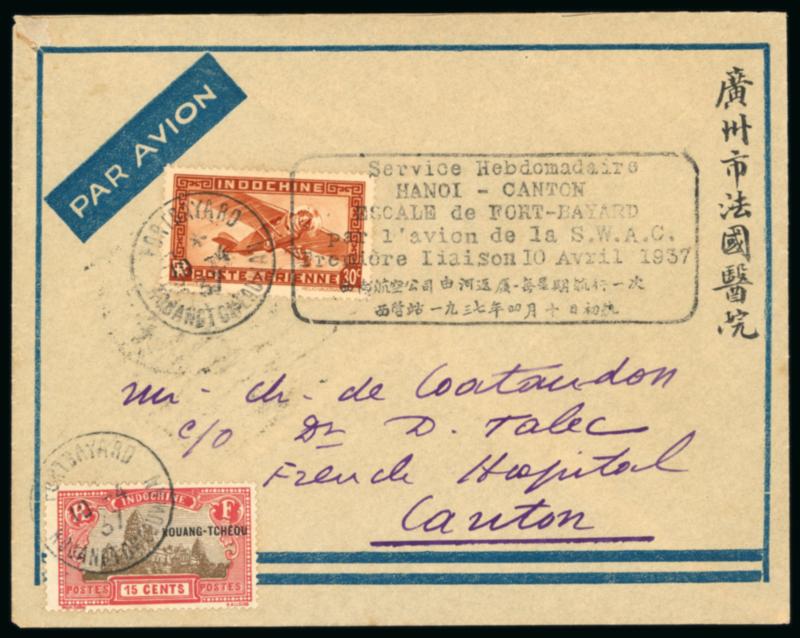 PAR AVION
INDOCHINE
POSTE AÉRIENNE 30c
FORT BAYARD
KOUANG TCHÉOU
Service Hebdomadaire
HANOI - CANTON
ESCALE de FORT-BAYARD
par l'avion de la S.W.A.C.
Première liaison 10 Avril 1937
航空公司由河返廣-每星期航行一次
西營站一九三七年四月十日初航
廣州市法國醫院
Mr. Ch. de Coataudon
c/o Dr D. Talec
French Hospital
Canton
FORT BAYARD
10 -4
37
INDOCHINE
F
KOUANG-TCHÉOU
POSTES 15 CENTS POSTES